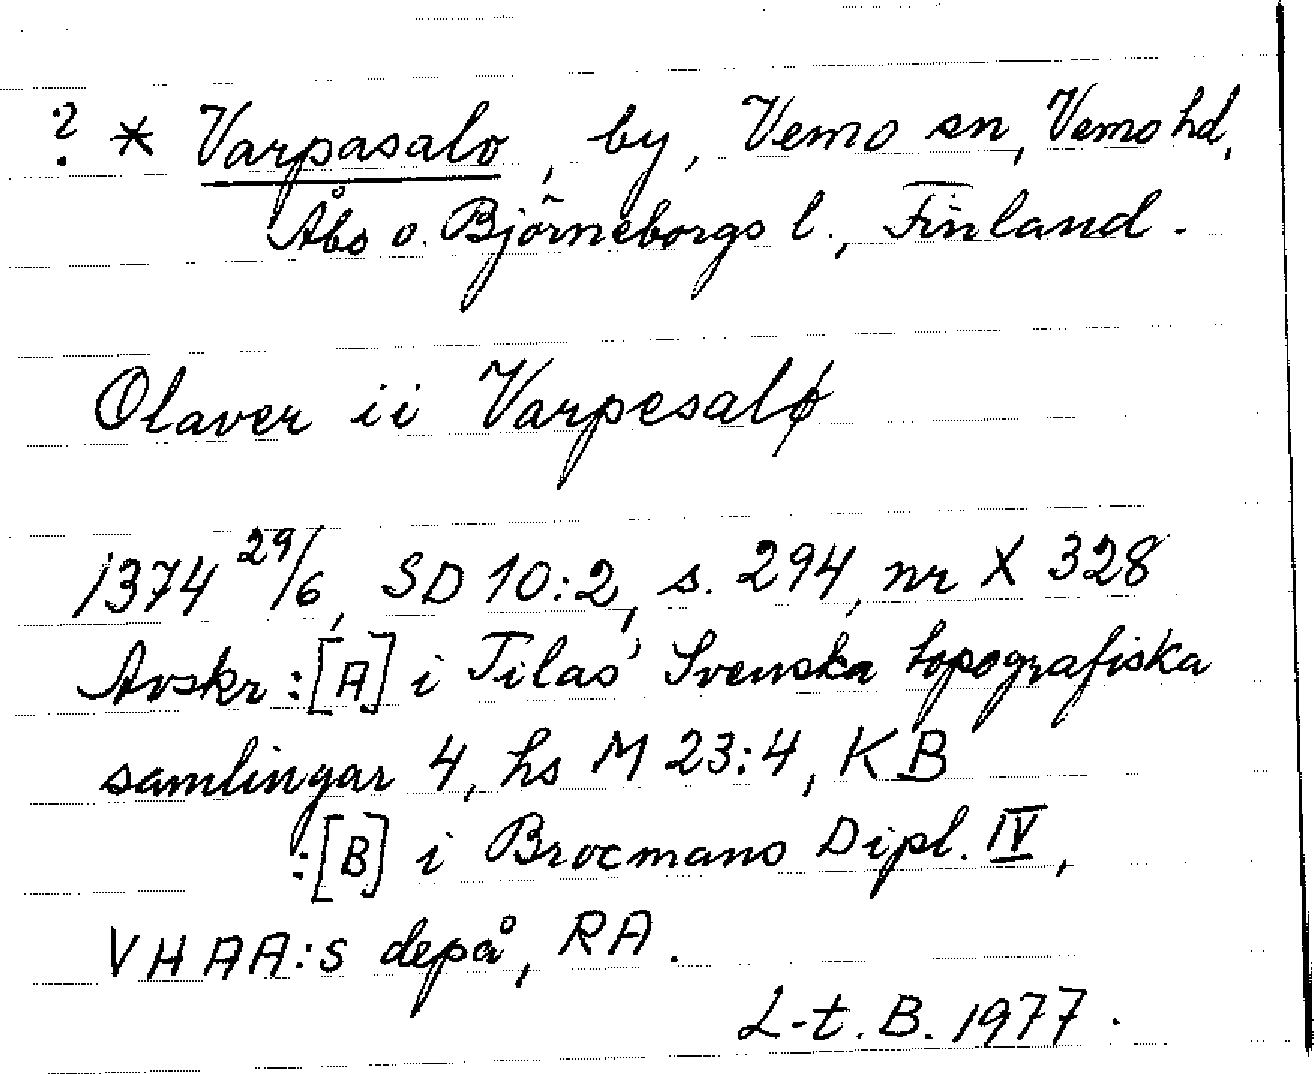 ? * Varpasalo, by, Vemo sn, Vemo hd,
Åbo o. Björneborgs l., Finland.
Olaver ii Varpesalø
1374 29/6, SD 10:2, s. 294, nr X 328
Avskr:[A] i Tilas' Svenska topografiska
samlingar 4, hs M 23:4, KB
:[B] i Brocmans Dipl. IV,
VHAA:s depå, RA.
L-t. B. 1977.